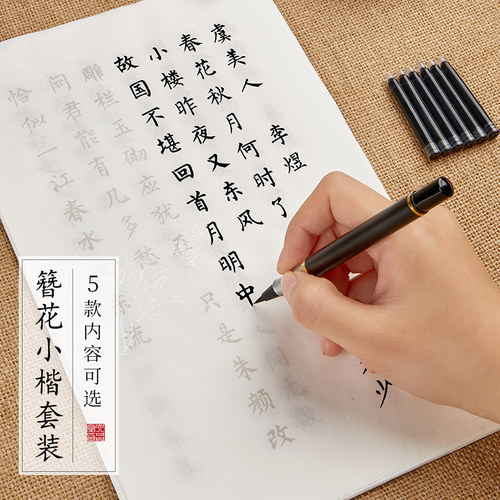 虞美人
李煜
春花秋月何时了
少
小楼昨夜又东风
故国不堪回首月明中
雕栏玉砌应犹在
只是朱颜改
问君能有几多愁
恰似一江春水
东流
5款内容可选
簪花小楷套装